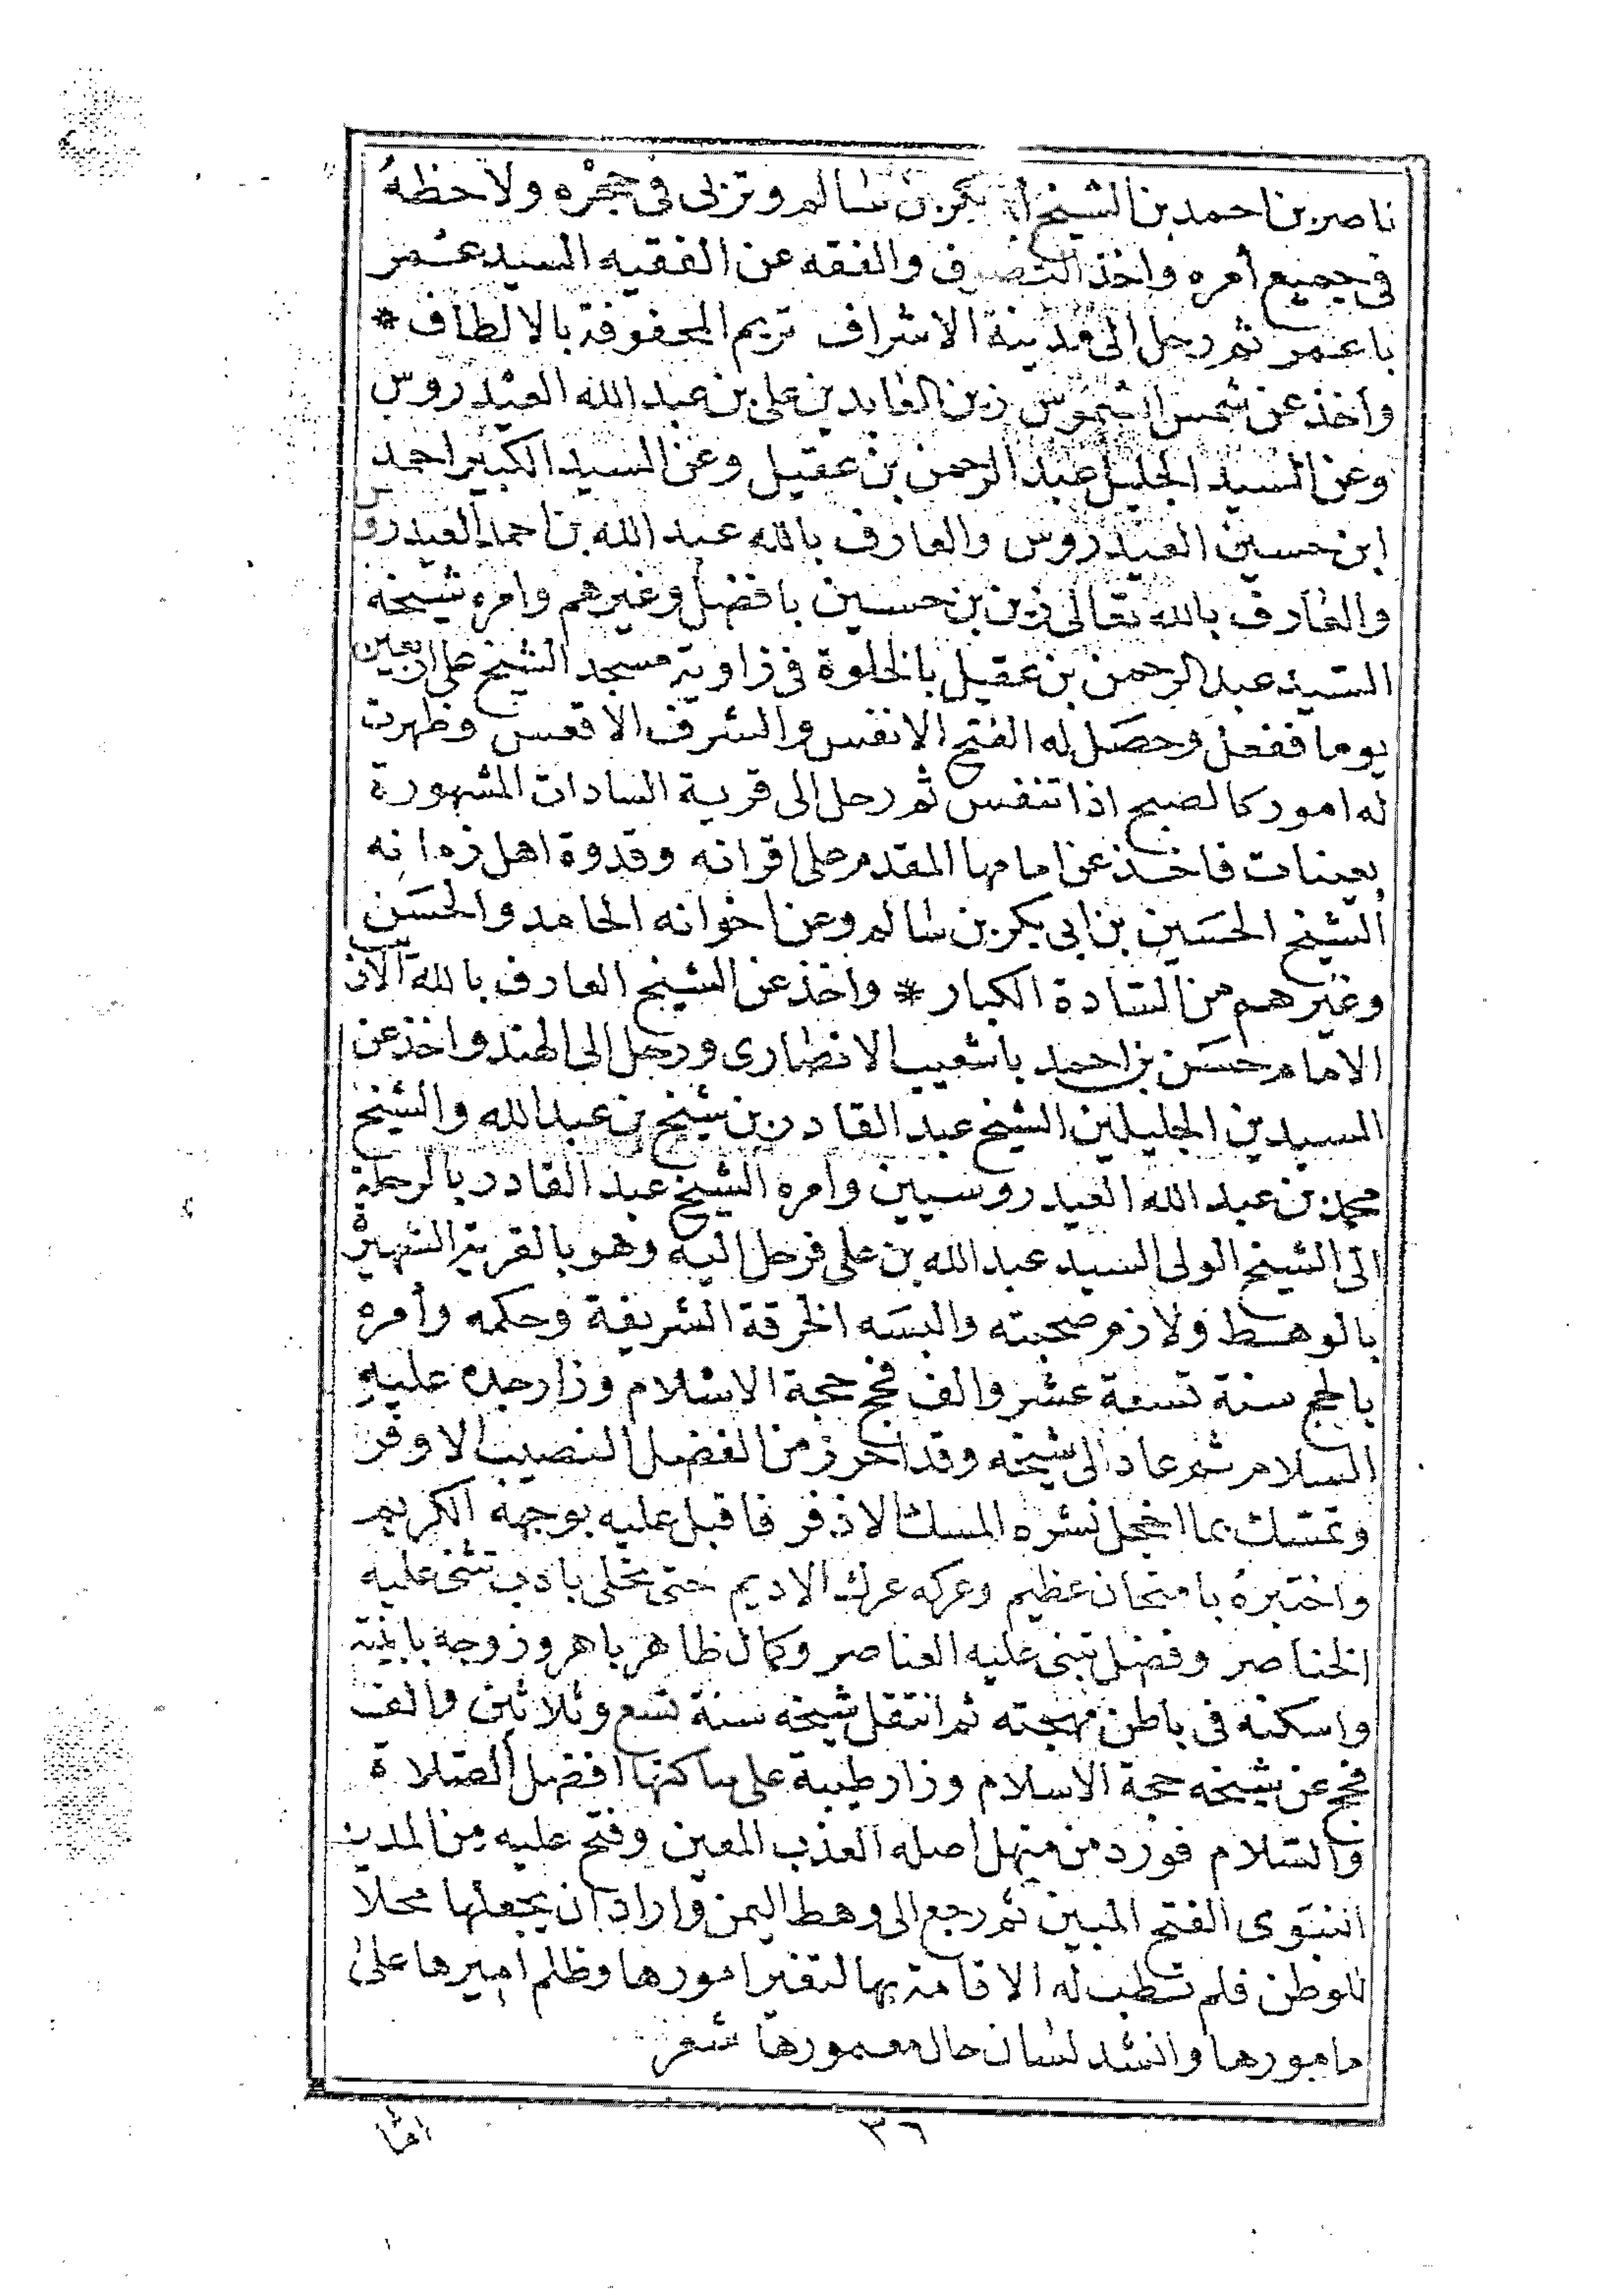 ناصر بن احمد بن الشيخ أبي بكر بن سالم وتربى فى حجْره ولاحظهُ
فى جميع أمره واخذ التصوف والفقه عن الفقيه السيد عمر
باعمر ثم رحل الى مدينة الاشراف تريم المحفوفة بالالطاف *
واخذ عن شمس الشموس زين العابدين على بن عبد الله العيْدروس
وعن السيد الجليل عبد الرحمن بن عقيل وعن السيد الكبير احمد
ابن حسين العيدروس والعارف بالله عبد الله بن احمد العيدروس
والعارف بالله تعالى زين بن حسين بافضل وغيرهم وامره شيخه
السيد عبد الرحمن بن عقيل بالخلوة فى زاوية مسجد الشيخ على اربعين
يوما ففعل وحصَل له الفتح الانفس والشرف الاقعس وظهرت
له امور كالصبح اذا تنفس ثم رحل الى قرية السادات المشهورة
بعينات فاخذ عن امامها المقدم على اقرانه وقدوة اهل زمانه
الشيخ الحسَين بن ابى بكر بن سالم وعن اخوانه الحامد والحسَن
وغيرهم من السَّادة الكبار * واخذ عن الشيخ العارف بالله الاديب
الامام حسَن بن احمد باشعيب الانصارى ورحل الى الهند واخذ عن
السيدين الجليلين الشيخ عبد القادر بن شيخ بن عبد الله والشيخ
محمد بن عبد الله العيدروسيين وامره الشيخ عبد القادر بالرحلة
الى الشيخ الولى السيد عبد الله بن على فرحل اليه وهو بالقرية الشهيرة
بالوهط ولازم صحبته والبسَه الخرقة الشريفة وحكمه وأمره
بالحج سنة تسعة عشر والف فحج حجة الاسلام وزار جده عليهِ
السلام ثم عاد الى شيخه وقد احرز من الفضل النصيب الاوفر
وتمسَك بما اخجل نشره المسك الاذفر فاقبل عليه بوجهه الكريم
واختبرهُ بامتحان عظيم وعركه عرك الاديم حتى تحلى بادب تثنى عليه
الخناصر وفضل تبنى عليه العناصر وكمال ظاهر باهر وزوجه بابنته
واسكنه فى باطن مهجته ثم انتقل شيخه سنة تسع وثلاثين والف
فحج عن شيخه حجة الاسلام وزار طيبة على ساكنها افضل الصلاة
والسَّلام فورد من منهل اصله العذب المعين وفتح عليه من المدد
النبَوى الفتح المبين ثم رجع الى وهط اليمن واراد ان يجعلها محلا
للوطن فلم تطب له الاقامة بها لتغير امورها وظلم اميرها على
مامورها وانشد لسَان حال معمورها شعر
٣٦
اما